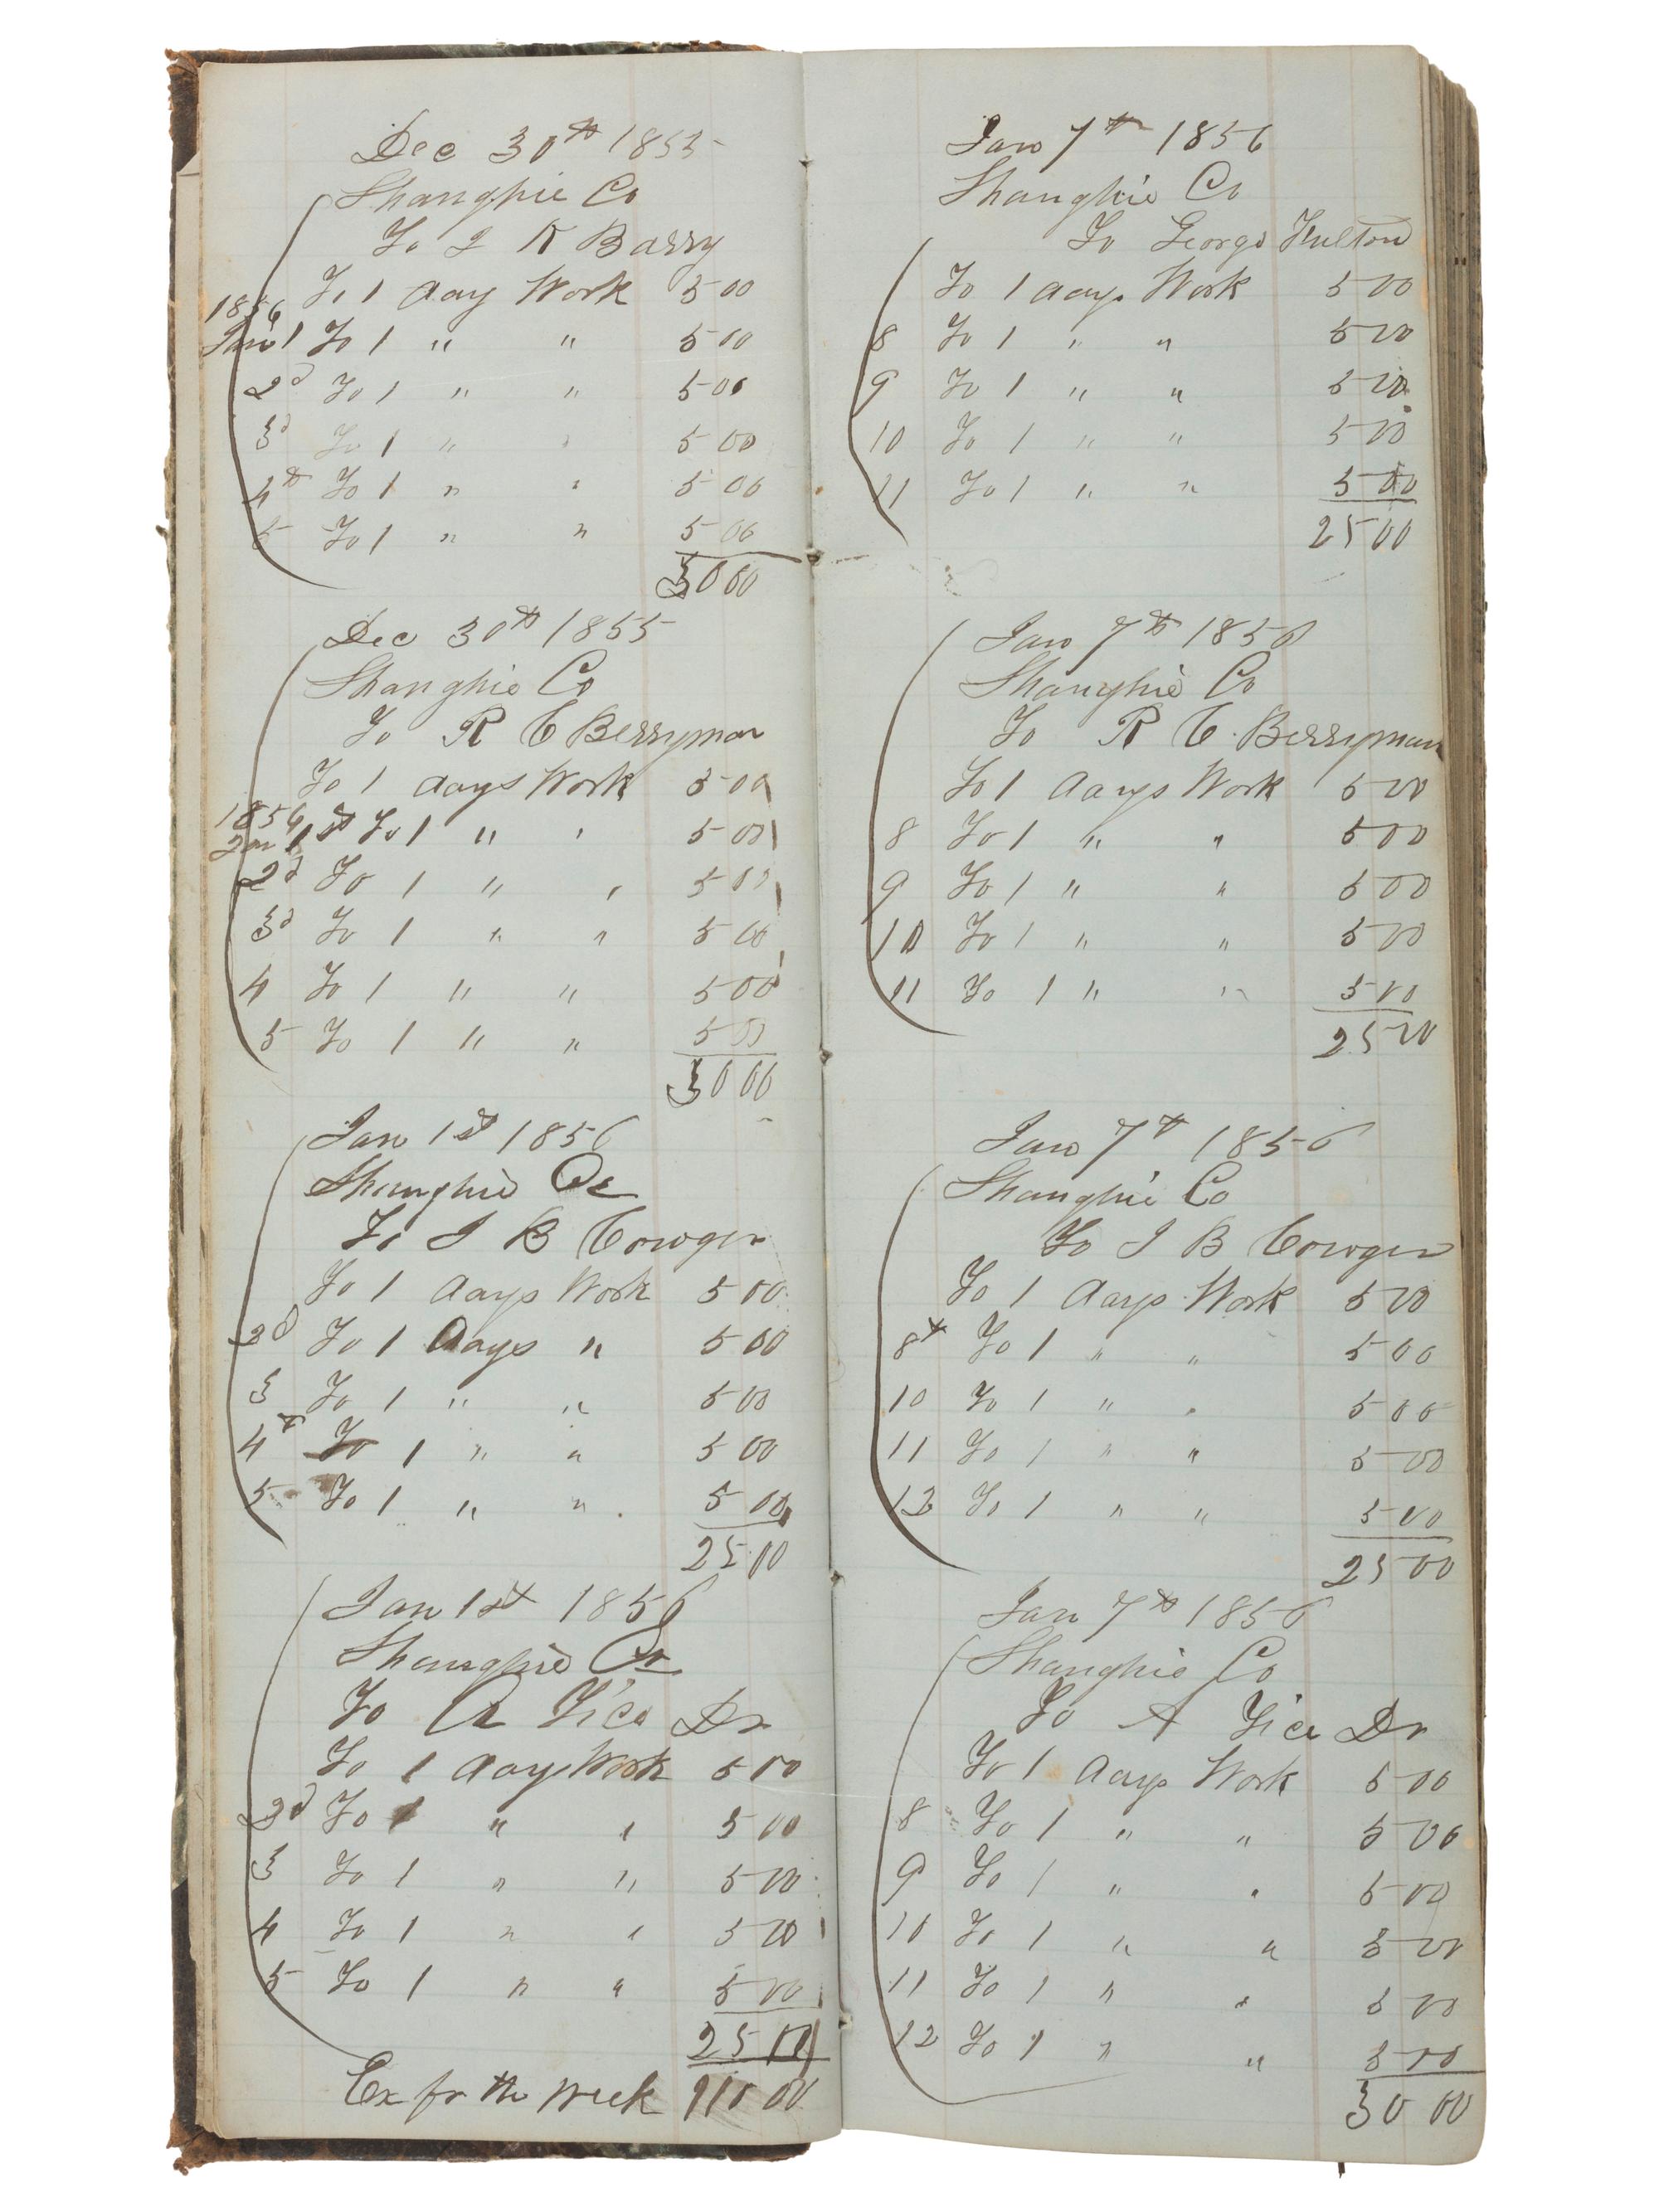 Dec 30th 1855
Shanghie Co
To J K Barry
To 1 day Work 5 00
1856
Jan 1 To 1 " " 5 00
2d To 1 " " 5 00
3d To 1 " " 5 00
4th To 1 " " 5 00
5 To 1 " " 5 00
30 00
Dec 30th 1855
Shanghie Co
To R C Berryman
To 1 days Work 5 00
1856
Jan 1st To 1 " " 5 00
2d To 1 " " 5 00
3d To 1 " " 5 00
4 To 1 " " 5 00
5 To 1 " " 5 00
30 00
Jan 1st 1856
Shanghie Co
To J B Cowger
To 1 days Work 5 00
2d To 1 days " 5 00
3 To 1 " " 5 00
4th To 1 " " 5 00
5 To 1 " " 5 00
25 00
Jan 1st 1856
Shanghie Co
To A Tice Dr
To 1 days Work 5 00
2d To 1 " " 5 00
3 To 1 " " 5 00
4 To 1 " " 5 00
5 To 1 " " 5 00
25 00
Ex for the week 110 00
Jan 7th 1856
Shanghie Co
To George Fulton
To 1 days Work 5 00
8 To 1 " " 5 00
9 To 1 " " 5 00
10 To 1 " " 5 00
11 To 1 " " 5 00
25 00
Jan 7th 1856
Shanghie Co
To R C Berryman
To 1 days Work 5 00
8 To 1 " " 5 00
9 To 1 " " 5 00
10 To 1 " " 5 00
11 To 1 " " 5 00
25 00
Jan 7th 1856
Shanghie Co
To J B Cowger
To 1 days Work 5 00
8th To 1 " " 5 00
10 To 1 " " 5 00
11 To 1 " " 5 00
12 To 1 " " 5 00
25 00
Jan 7th 1856
Shanghie Co
To A Tice Dr
To 1 days Work 5 00
8 To 1 " " 5 00
9 To 1 " " 5 00
10 To 1 " " 5 00
11 To 1 " " 5 00
12 To 1 " " 5 00
30 00